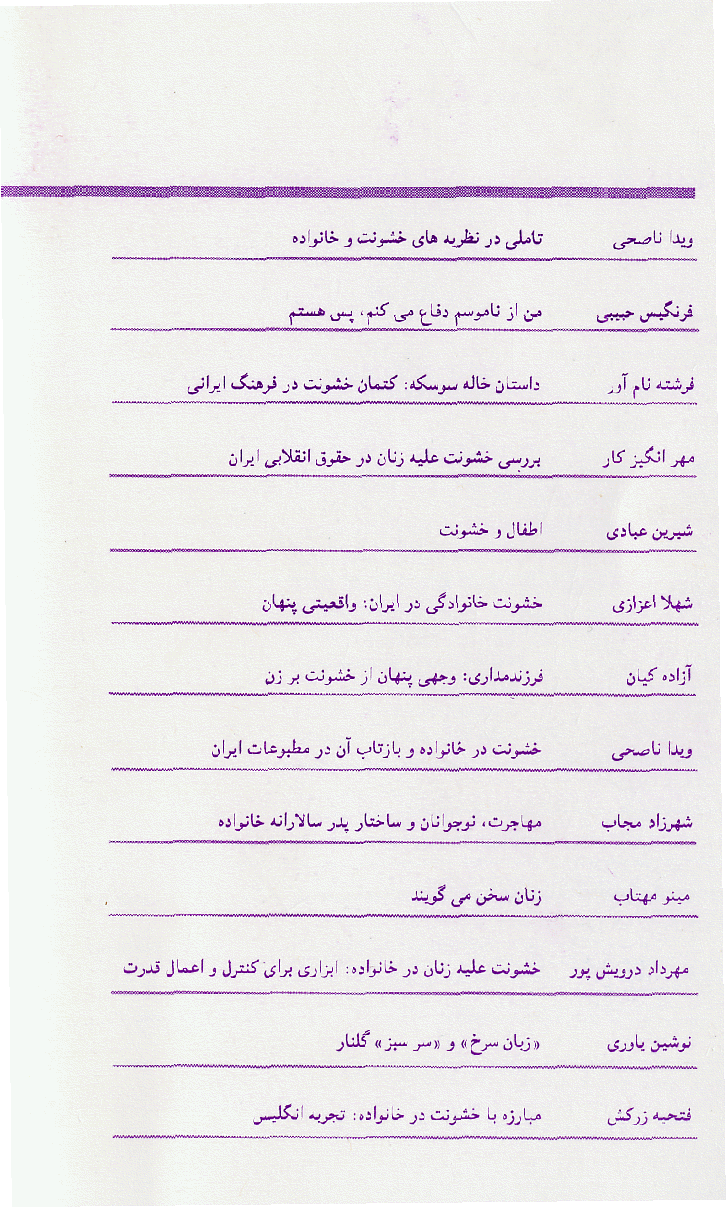 ویدا ناصحی تاملی در نظریه های خشونت و خانواده
فرنگیس حبیبی من از ناموسم دفاع می کنم، پس هستم
فرشته نام آور داستان خاله سوسکه: کتمان خشونت در فرهنگ ایرانی
مهر انگیز کار بررسی خشونت علیه زنان در حقوق انقلابی ایران
شیرین عبادی اطفال و خشونت
شهلا اعزازی خشونت خانوادگی در ایران: واقعیتی پنهان
آزاده کیان فرزندمداری: وجهی پنهان از خشونت بر زن
ویدا ناصحی خشونت در خانواده و بازتاب آن در مطبوعات ایران
شهرزاد مجاب مهاجرت، نوجوانان و ساختار پدر سالارانه خانواده
مینو مهتاب زنان سخن می گویند
مهرداد درویش پور خشونت علیه زنان در خانواده: ابزاری برای کنترل و اعمال قدرت
نوشین یاوری «زبان سرخ» و «سر سبز» گلنار
فتحیه زرکش مبارزه با خشونت در خانواده: تجربه انگلیس